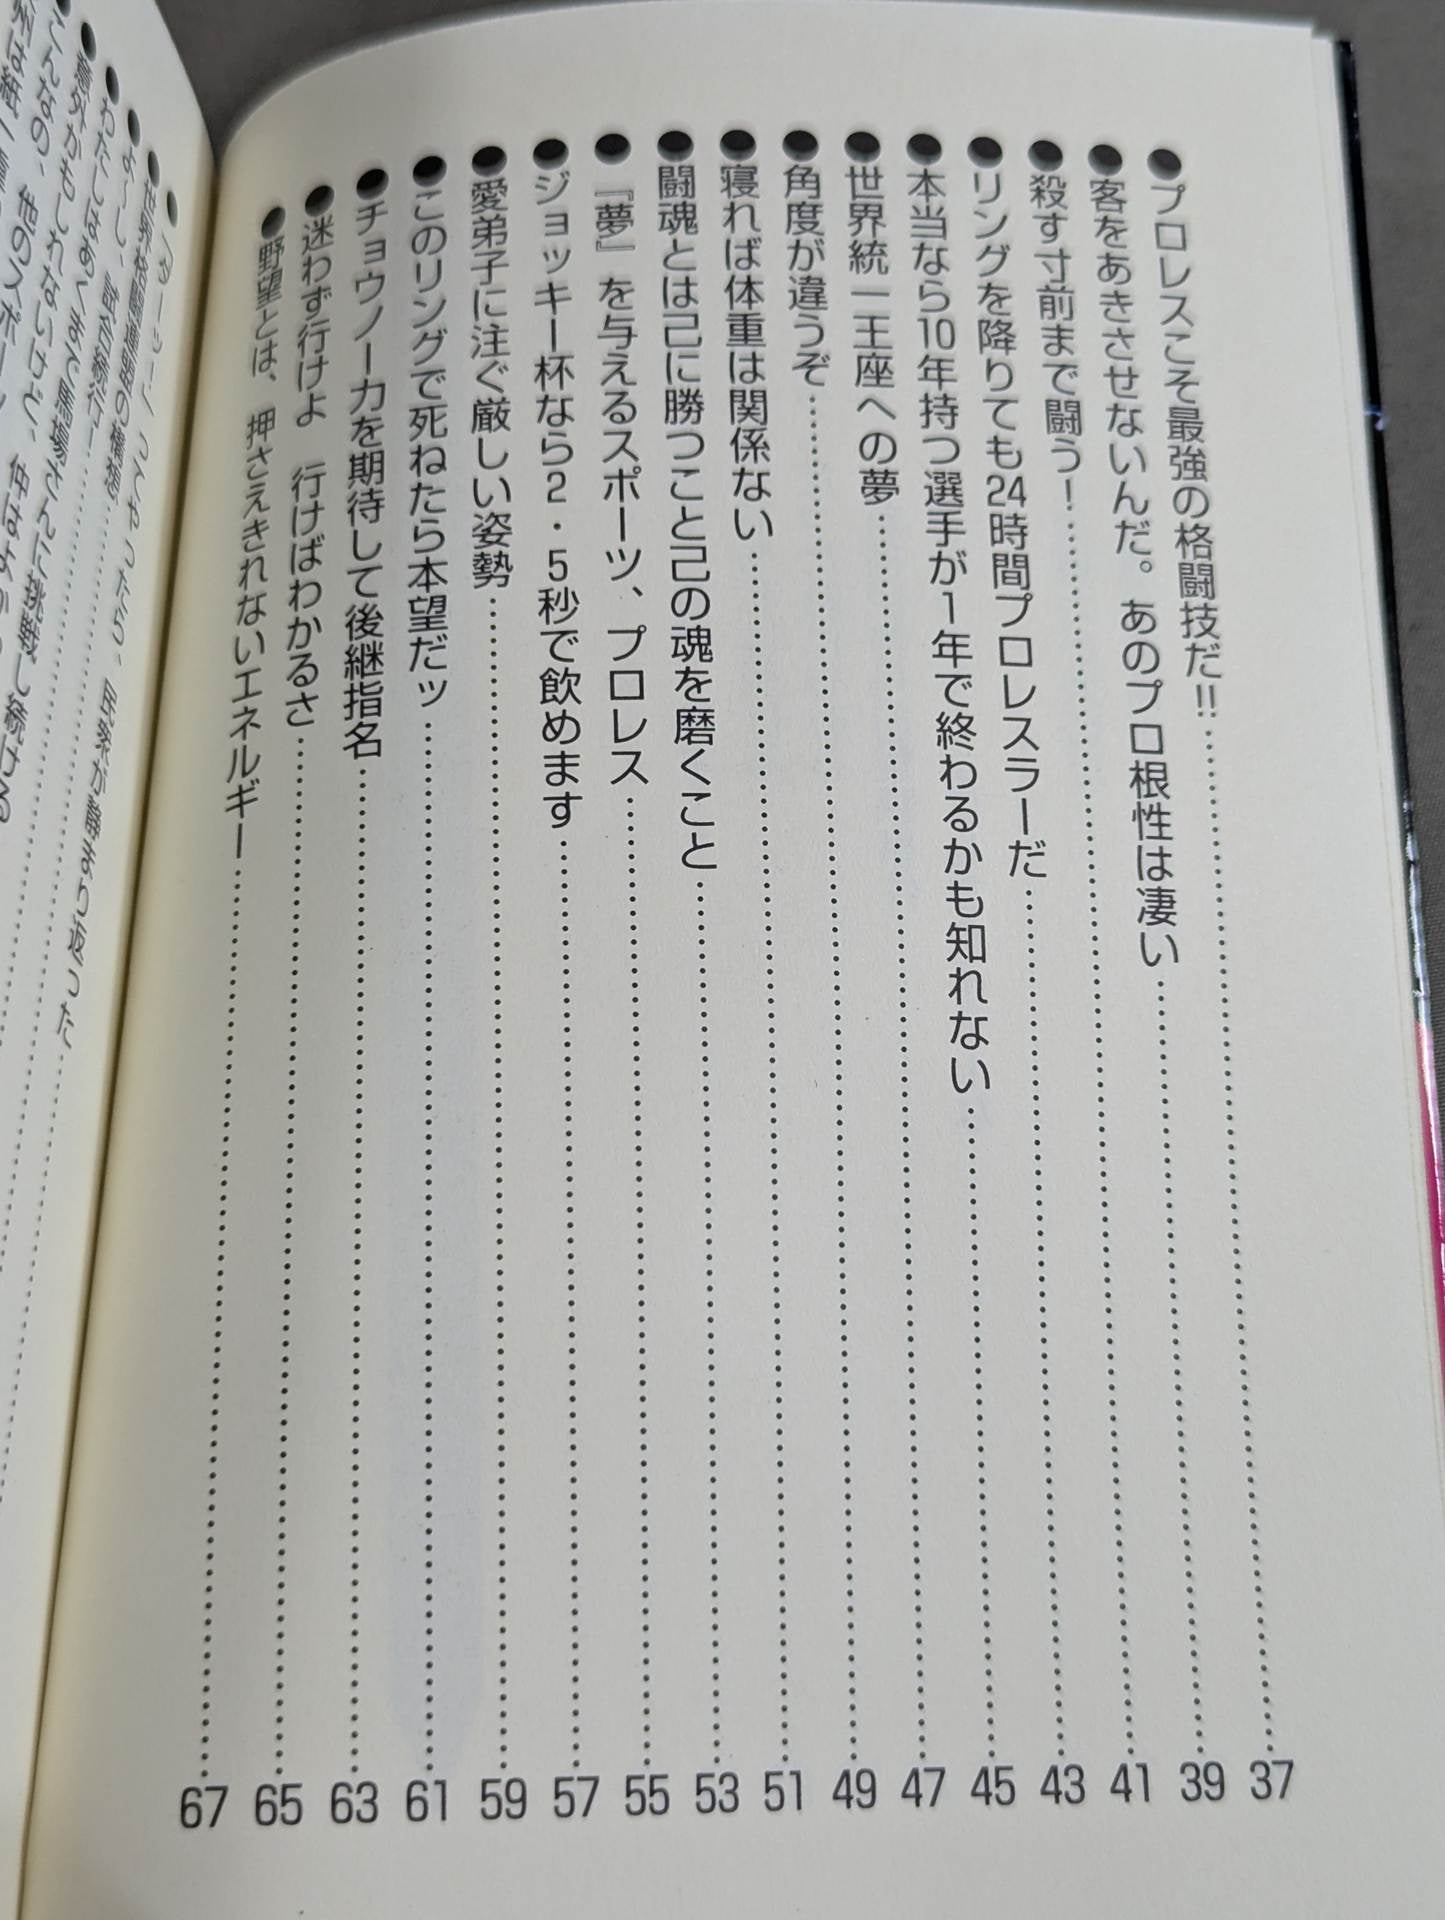 ●プロレスこそ最強の格闘技だ!!……37
●客をあきさせないんだ。あのプロ根性は凄い……39
●殺す寸前まで闘う！……41
●リングを降りても24時間プロレスラーだ……43
●本当なら10年持つ選手が1年で終わるかも知れない……45
●世界統一王座への夢……47
●角度が違うぞ……49
●寝れば体重は関係ない……51
●闘魂とは己に勝つこと己の魂を磨くこと……53
●『夢』を与えるスポーツ、プロレス……55
●ジョッキー杯なら2・5秒で飲めます……57
●愛弟子に注ぐ厳しい姿勢……59
●このリングで死ねたら本望だッ……61
●チョウノー力を期待して後継指名……63
●迷わず行けよ　行けばわかるさ……65
●野望とは、押さえきれないエネルギー……67
ってやったら、民衆が静まり返った……
●世界格闘連盟の構想……
●よ〜し、試合続行！……
●わたしはあくまで馬場さんに挑戦し続ける
●意外かもしれないけど、仲はよか
●こんなの、他のスポー